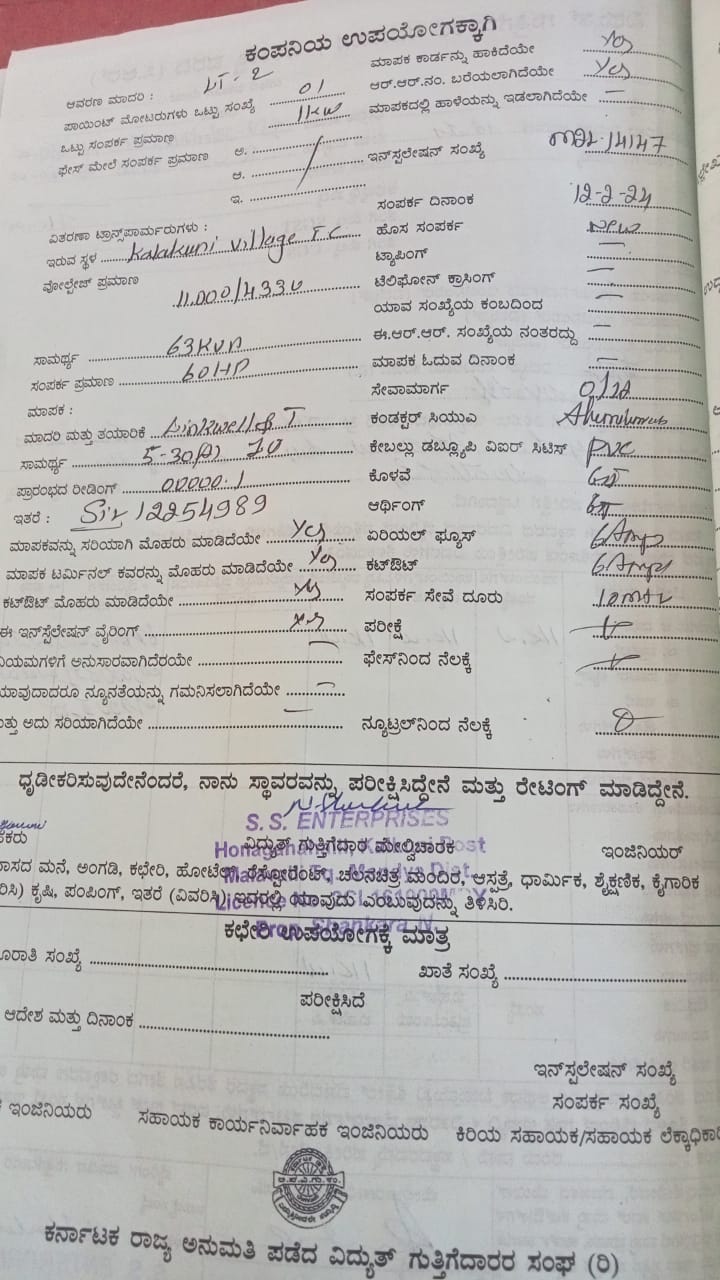 ಕಂಪನಿಯ ಉಪಯೋಗಕ್ಕಾಗಿ
ಆವರಣ ಮಾದರಿ : LT-2
ಪಾಯಿಂಟ್ ಮೋಟರುಗಳು ಒಟ್ಟು ಸಂಖ್ಯೆ 01
ಒಟ್ಟು ಸಂಪರ್ಕ ಪ್ರಮಾಣ 1kw
ಫೇಸ್ ಮೇಲೆ ಸಂಪರ್ಕ ಪ್ರಮಾಣ ಅ.
ಆ.
ಇ.
ವಿತರಣಾ ಟ್ರಾನ್ಸ್‌ಫಾರ್ಮರುಗಳು :
ಇರುವ ಸ್ಥಳ Kalakuni Village T C
ವೋಲ್ಟೇಜ್ ಪ್ರಮಾಣ 11.000/433 V
ಸಾಮರ್ಥ್ಯ 63KVA
ಸಂಪರ್ಕ ಪ್ರಮಾಣ 60HP
ಮಾಪಕ :
ಮಾದರಿ ಮತ್ತು ತಯಾರಿಕೆ Linkwell
ಸಾಮರ್ಥ್ಯ 5-30(A)
ಪ್ರಾರಂಭದ ರೀಡಿಂಗ್ 00000.1
ಇತರೆ : 12254989
ಮಾಪಕವನ್ನು ಸರಿಯಾಗಿ ಮೊಹರು ಮಾಡಿದೆಯೇ Yes
ಮಾಪಕ ಟರ್ಮಿನಲ್ ಕವರನ್ನು ಮೊಹರು ಮಾಡಿದೆಯೇ Yes
ಕಟ್‌ಔಟ್ ಮೊಹರು ಮಾಡಿದೆಯೇ Yes
ಈ ಇನ್‌ಸ್ಟಲೇಷನ್ ವೈರಿಂಗ್ Yes
ನಿಯಮಗಳಿಗೆ ಅನುಸಾರವಾಗಿದೆರಯೇ —
ಯಾವುದಾದರೂ ನ್ಯೂನತೆಯನ್ನು ಗಮನಿಸಲಾಗಿದೆಯೇ —
ಮತ್ತು ಅದು ಸರಿಯಾಗಿದೆಯೇ —
ಮಾಪಕ ಕಾರ್ಡನ್ನು ಹಾಕಿದೆಯೇ Yes
ಆರ್.ಆರ್.ನಂ. ಬರೆಯಲಾಗಿದೆಯೇ Yes
ಮಾಪಕದಲ್ಲಿ ಹಾಳೆಯನ್ನು ಇಡಲಾಗಿದೆಯೇ —
ಇನ್‌ಸ್ಪಲೇಷನ್ ಸಂಖ್ಯೆ 14147
ಸಂಪರ್ಕ ದಿನಾಂಕ 12-2-24
ಹೊಸ ಸಂಪರ್ಕ New
ಟ್ಯಾಪಿಂಗ್ —
ಟೆಲಿಫೋನ್ ಕ್ರಾಸಿಂಗ್ —
ಯಾವ ಸಂಖ್ಯೆಯ ಕಂಬದಿಂದ —
ಈ.ಆರ್.ಆರ್. ಸಂಖ್ಯೆಯ ನಂತರದ್ದು —
ಮಾಪಕ ಓದುವ ದಿನಾಂಕ —
ಸೇವಾಮಾರ್ಗ
ಕಂಡಕ್ಟರ್ ಸಿಯುಎ
ಕೇಬಲ್ಲು ಡಬ್ಲ್ಯೂಪಿ ವಿಐರ್ ಸಿಟಿಸ್ PVC
ಕೊಳವೆ GI
ಆರ್ಥಿಂಗ್ GI
ಏರಿಯಲ್ ಫ್ಯೂಸ್ 6Amps
ಕಟ್‌ಔಟ್ 6Amps
ಸಂಪರ್ಕ ಸೇವೆ ದೂರು 10mtr
ಪರೀಕ್ಷೆ
ಫೇಸ್‌ನಿಂದ ನೆಲಕ್ಕೆ
ನ್ಯೂಟ್ರಲ್‌ನಿಂದ ನೆಲಕ್ಕೆ
ಧೃಢೀಕರಿಸುವುದೇನೆಂದರೆ, ನಾನು ಸ್ಥಾವರವನ್ನು ಪರೀಕ್ಷಿಸಿದ್ದೇನೆ ಮತ್ತು ರೇಟಿಂಗ್ ಮಾಡಿದ್ದೇನೆ.
S. S. ENTERPRISES
ವಿದ್ಯುತ್ ಗುತ್ತಿಗೆದಾರ ಮೇಲ್ವಿಚಾರಕ ಇಂಜಿನಿಯರ್
ವಾಸದ ಮನೆ, ಅಂಗಡಿ, ಕಛೇರಿ, ಹೋಟೆಲ್, ರೆಸ್ಟೋರೆಂಟ್, ಚಲನಚಿತ್ರ ಮಂದಿರ, ಆಸ್ಪತ್ರೆ, ಧಾರ್ಮಿಕ, ಶೈಕ್ಷಣಿಕ, ಕೈಗಾರಿಕ
ಕೃಷಿ, ಪಂಪಿಂಗ್, ಇತರೆ (ವಿವರಿಸಿ) ಇದರಲ್ಲಿ ಯಾವುದು ಎಂಬುವುದನ್ನು ತಿಳಿಸಿರಿ.
ಕಛೇರಿ ಉಪಯೋಗಕ್ಕೆ ಮಾತ್ರ
ಸಂಖ್ಯೆ ಖಾತೆ ಸಂಖ್ಯೆ
ಪರೀಕ್ಷಿಸಿದೆ
ಆದೇಶ ಮತ್ತು ದಿನಾಂಕ
ಇನ್‌ಸ್ಪಲೇಷನ್ ಸಂಖ್ಯೆ
ಸಂಪರ್ಕ ಸಂಖ್ಯೆ
ಇಂಜಿನಿಯರು ಸಹಾಯಕ ಕಾರ್ಯನಿರ್ವಾಹಕ ಇಂಜಿನಿಯರು ಕಿರಿಯ ಸಹಾಯಕ/ಸಹಾಯಕ ಲೆಕ್ಕಾಧಿಕಾರಿ
ಕರ್ನಾಟಕ ರಾಜ್ಯ ಅನುಮತಿ ಪಡೆದ ವಿದ್ಯುತ್ ಗುತ್ತಿಗೆದಾರರ ಸಂಘ (ರಿ)